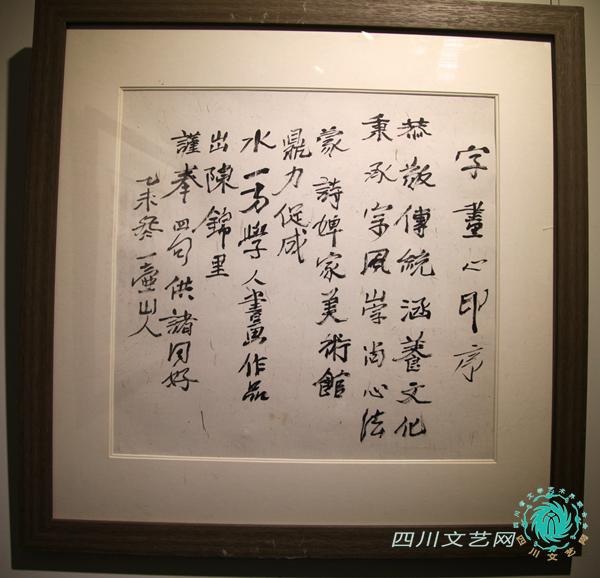 字畫心印序
恭敬傳統涵養文化
秉承宗風崇尚心法
蒙詩婢家美術館
鼎力促成
水一方學人書畫作品
出陳錦里
謹奉四句供諸同好
乙未冬一壺山人
四川文艺网
四川省文学艺术界联合会
四川文艺网